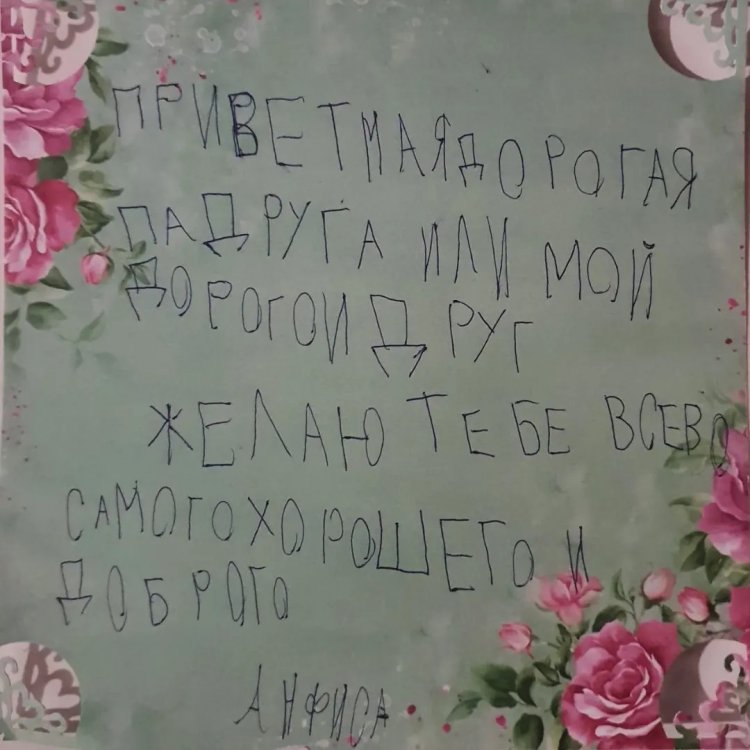 ПРИВЕТ МАЯ ДОРОГАЯ
ПАДРУГА ИЛИ МОЙ
ДОРОГОИ ДРУГ
ЖЕЛАЮ ТЕБЕ ВСЕВО
САМОГО ХОРОШЕГО И
ДОБРОГО
АНФИСА